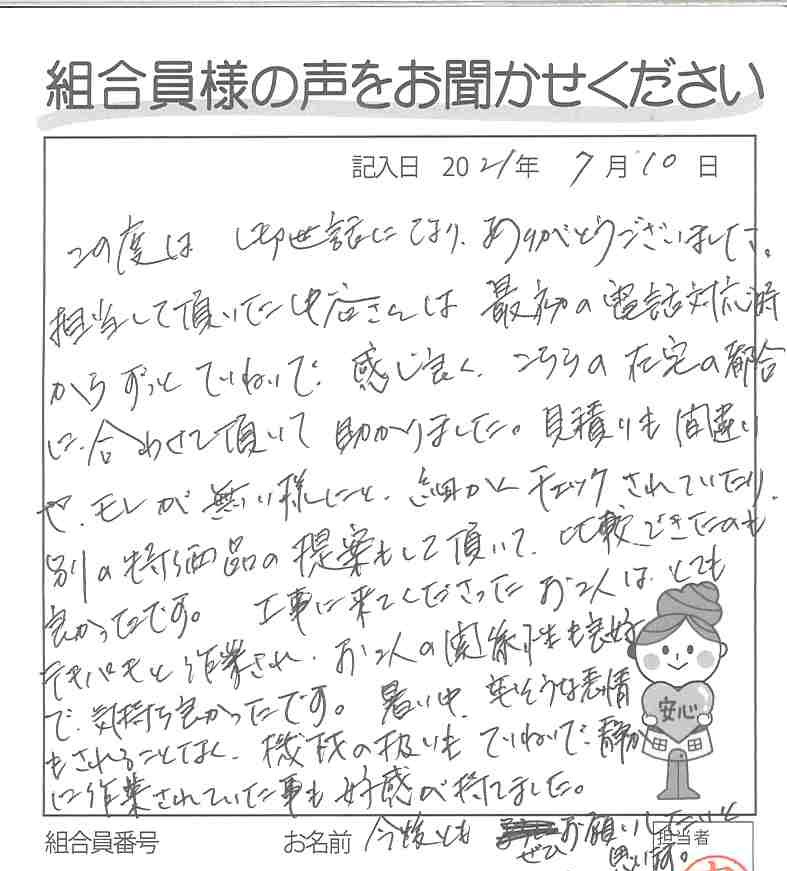 組合員様の声をお聞かせください
記入日 2021年 7月10日
この度は お世話になり、ありがとうございました。
担当して頂いた 中谷さんは 最初の電話対応時
からずっと ていねいで、感じ良く、こちらの在宅の都合
に、合わせて頂いて 助かりました。見積りも間違い
や、モレが無い様にと、細かくチェックされていたり、
別の特価品の提案もして頂いて、比較できたのも
良かったです。 工事に来てくださった お2人は、とても
テキパキと作業され、お2人の関係性も良好
で、気持ち良かったです。暑い中、そうな表情
もされることなく、機械の扱いも ていねいで、静か
に作業されていた事も 好感が持てました。
安心
組合員番号 お名前 今後とも ぜひ お願いしたいと
思います。
担当者